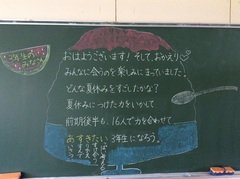 2年生のみなさんへ
おはようございます！そして、おかえり♡
みんなに会うのを楽しみにまっていました！
どんな夏休みをすごしたかな？
夏休みにつけた力をいかして
前期後半も、16人で力を合わせて
あすきたい3年生になろう。